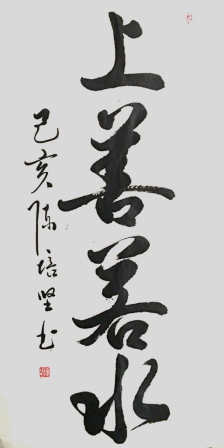 上善若水
己亥陈培坚书